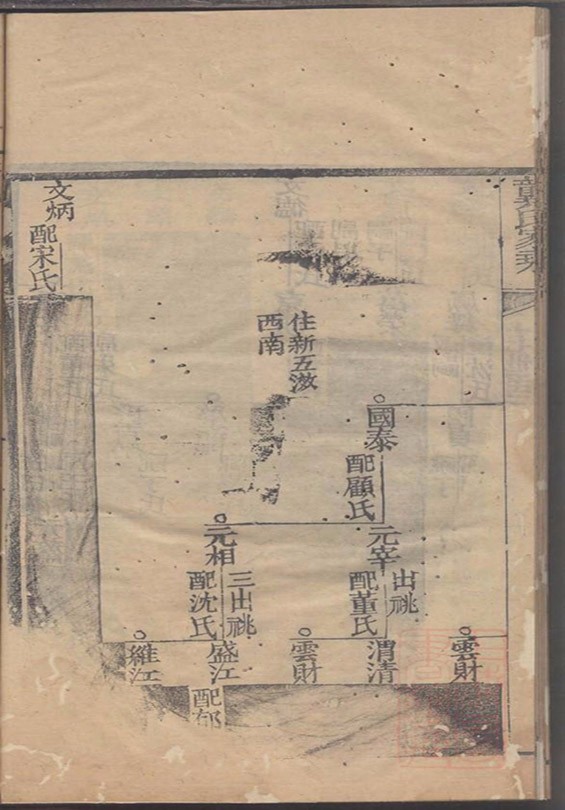 國泰
配顧氏
元宰
出祧
配董氏
雲財
渭清
雲財
住新五滧
西南
元相
三出祧
配沈氏
盛江
配郁
維江
文炳
配宋氏